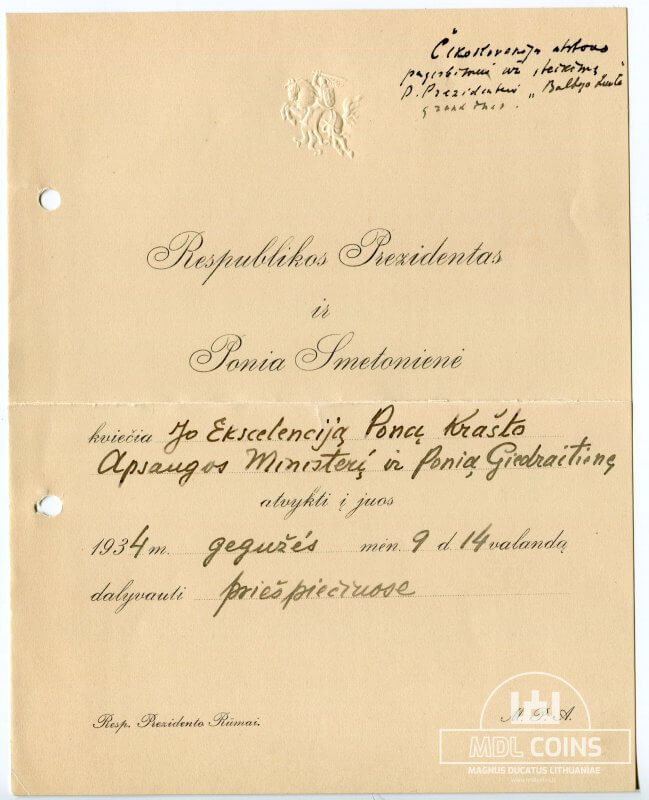 Čikoslovakija atstovo
pagerbimui už įteikimą
P. Prezidentui „Baltojo Liūto"
grand
Respublikos Prezidentas
ir
Ponia Smetonienė
kviečia Jo Ekscelenciją Poną Krašto
Apsaugos Ministerį ir Ponią Giedraitienę
atvykti į juos
1934 m. gegužės mėn. 9 d. 14 valandą
dalyvauti priešpiečiuose
Resp. Prezidento Rūmai.
M. P. A.
MDL COINS
MAGNUS DUCATUS LITHUANIAE